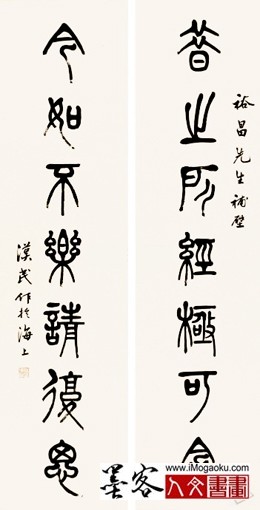 昔之所經極可念
裕昌先生補壁
今如不樂請復思
漢民作於海上
www.iMogaoku.com
墨客
人文書畫